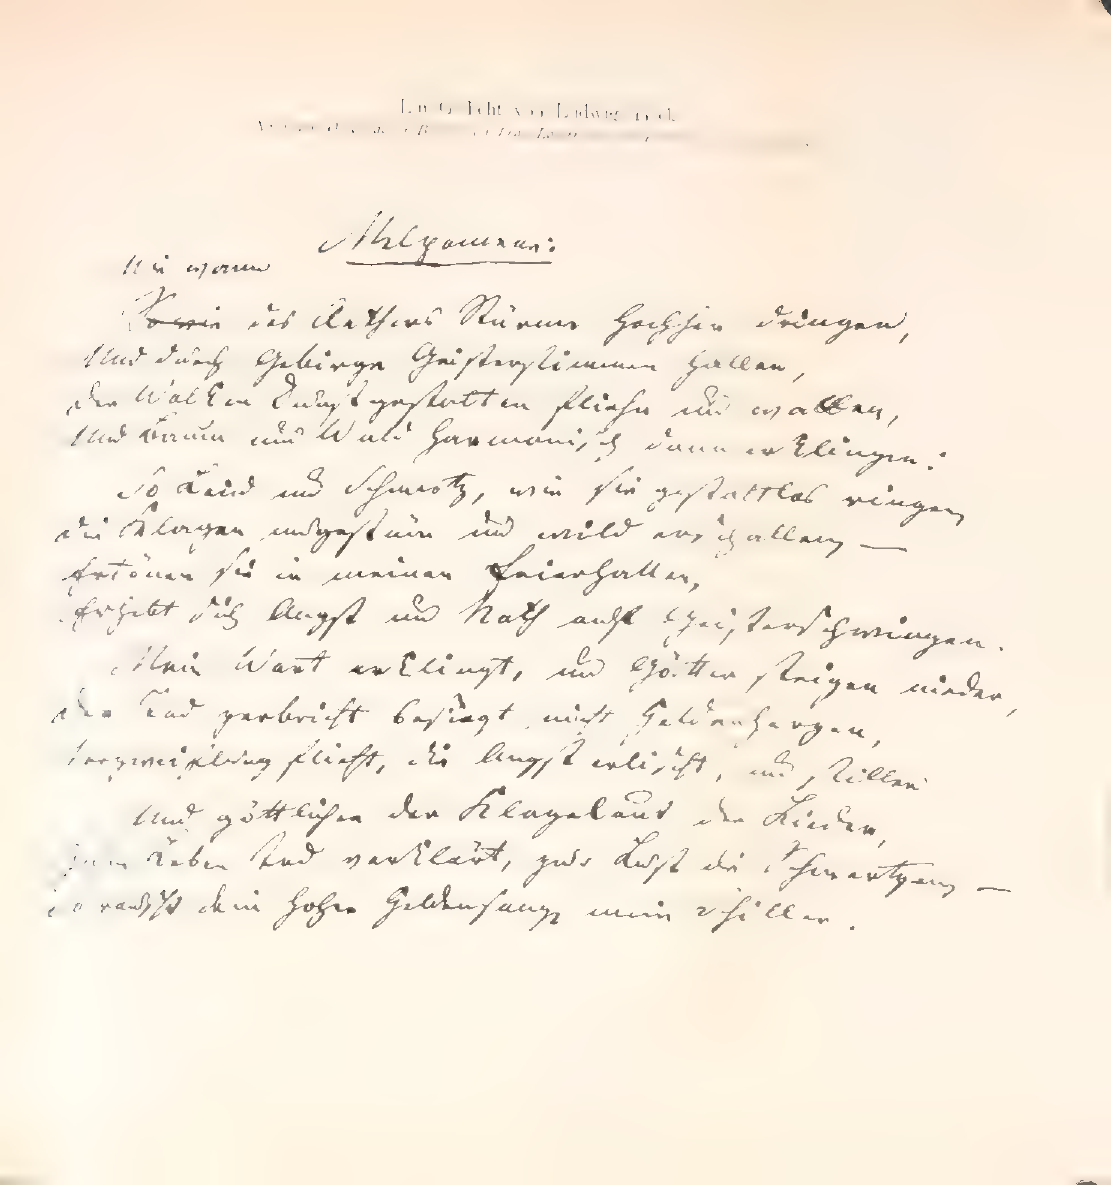 Ein Gedicht von Ludwig Tieck
Melpomene:
Wie wann
Sowie des Aethers Stürme hochher dringen,
Und durch Gebirge Geisterstimmen hallen,
der Wolken Dunstgestalten fliehn und wallen,
Und Baum und Wald harmonisch dann erklingen:
So Leid und Schmertz, wie sie gestaltlos ringen
die Klagen ungestüm und wild erschallen —
Ertönen sie in meinen Feierhallen,
Erhebt sich Angst und Noth auf Geisterschwingen.
Mein Wort erklingt, und Götter steigen nieder,
der Tod zerbricht besiegt nicht Heldenherzen,
Verzweiflung flieht, die Angst erlischt, und stiller
Und göttlicher der Klagelaut der Lieder,
Zum Leben Tod verklärt, zur Lust die Schmertzen —
So rauscht dein hoher Heldensang, mein Schiller.